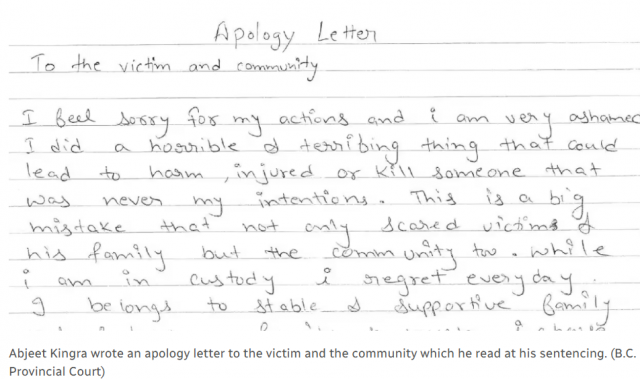 Apology Letter
To the victim and community
I feel sorry for my actions and i am very ashamed
I did a horrible & terribing thing that could
lead to harm , injured or kill someone that
was never my intentions. This is a big
mistake that not only scared victims &
his family but the community too. while
i am in custody i regret everyday.
I belongs to stable & supportive family
Abjeet Kingra wrote an apology letter to the victim and the community which he read at his sentencing. (B.C.
Provincial Court)